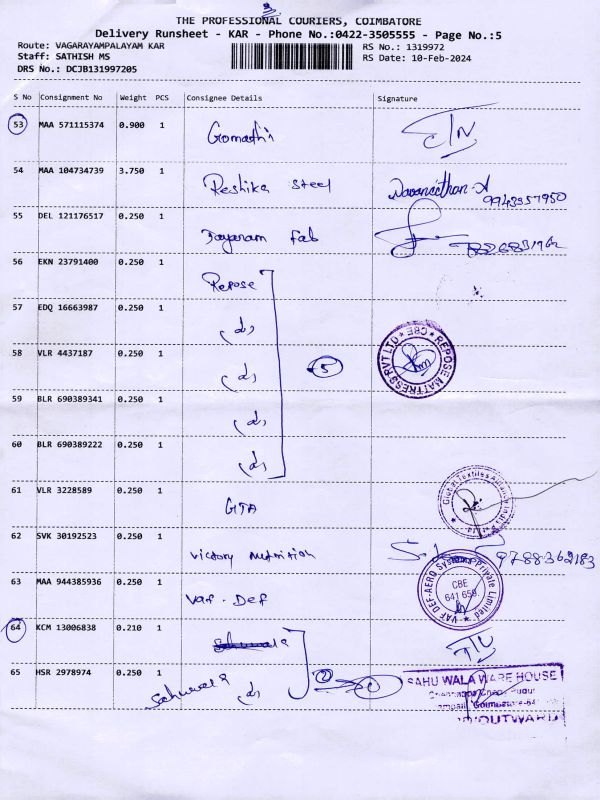 THE PROFESSIONAL COURIERS, COIMBATORE
Delivery Runsheet - KAR - Phone No.:0422-3505555 - Page No.:5
Route: VAGARAYAMPALAYAM KAR
RS No.: 1319972
Staff: SATHISH MS
RS Date: 10-Feb-2024
DRS No.: DCJB131997205
S No Consignment No Weight PCS Consignee Details Signature
53 MAA 571115374 0.900 1 Gomathi
54 MAA 104734739 3.750 1 Reshika steel Navaneethan.A
9943957950
55 DEL 121176517 0.250 1 Jayaram Fab
56 EKN 23791400 0.250 1 Repose
57 EDQ 16663987 0.250 1 (d)
58 VLR 4437187 0.250 1 (d) 5
REPOSE MATTRESS PVT LTD CBE
59 BLR 690389341 0.250 1 (d)
60 BLR 690389222 0.250 1 (d)
61 VLR 3228589 0.250 1 GTA
Global Textiles
62 SVK 30192523 0.250 1 Victory Nutrition 9788362183
63 MAA 944385936 0.250 1 Vaf-Def
VAF DEF-AERO Systems Private Limited
CBE
641 659.
64 KCM 13006838 0.210 1
65 HSR 2978974 0.250 1 Sahuwala (d) 2
SAHU WALA WARE HOUSE
Coimbatore-64
OUTWARD